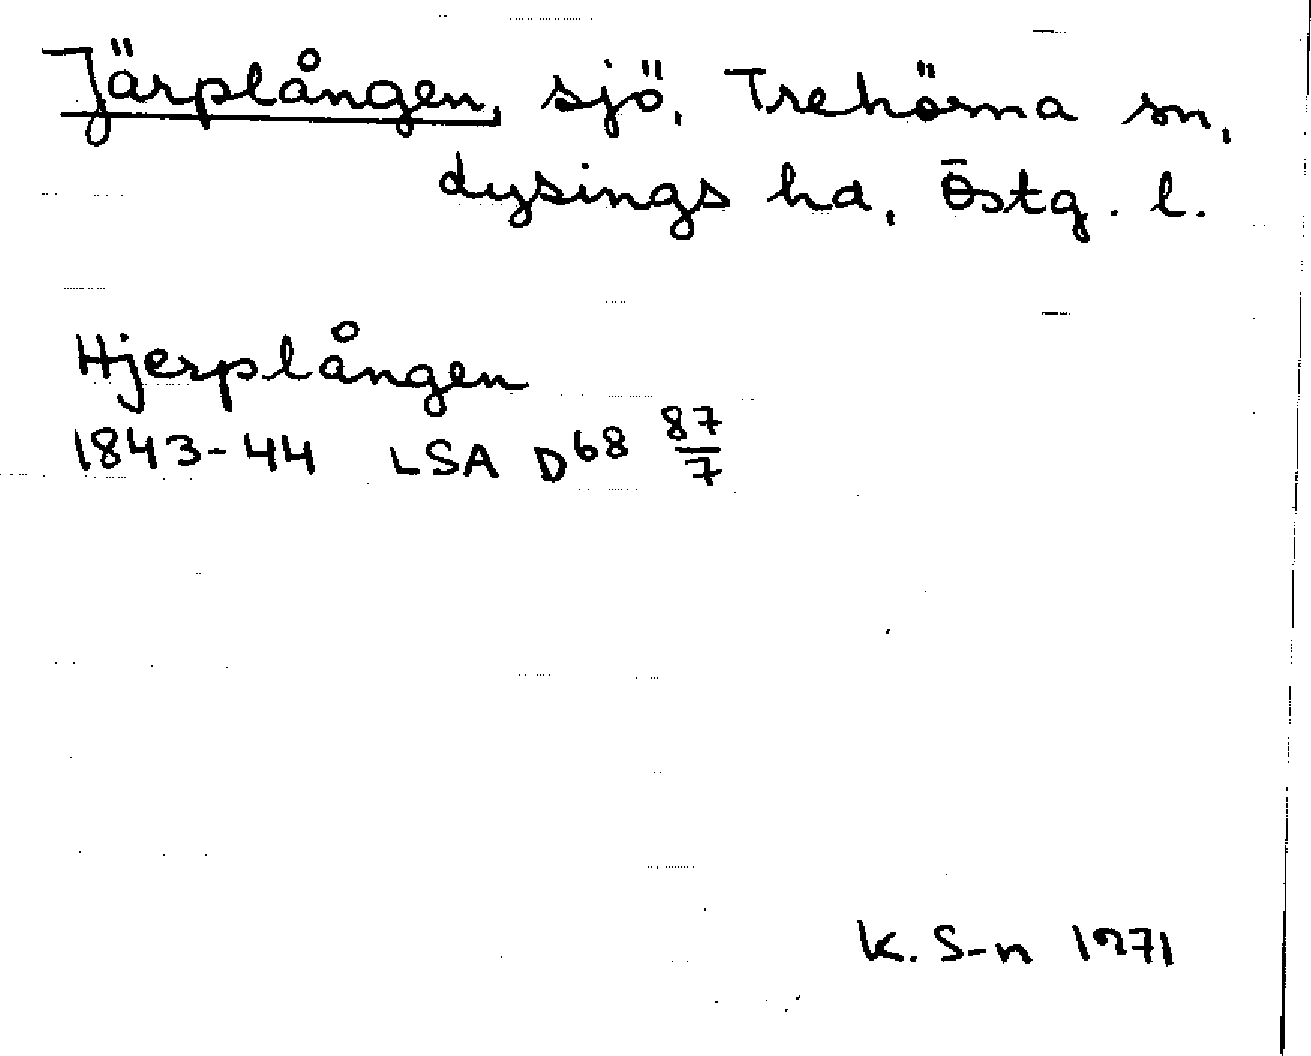 Järplången, sjö, Trehörna sn,
dysings hd, Östg. l.
Hjerplången
1843-44 LSA D68 87/7
K. S-n 1971